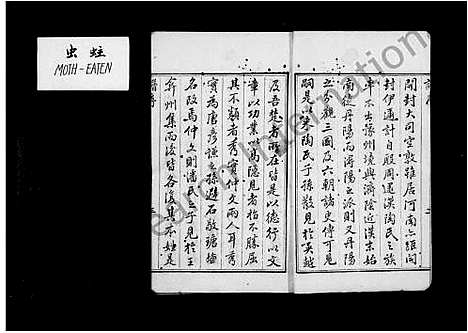 虫蛀
MOTH-EATEN
開封大司空敦雅居河南六維開
封伊通計自股周迄漢陶氏之族
率不出豫州境與濟陰近漢末始
南徙丹陽而潯陽之派則又丹陽
之分觀三國及六朝諸史傳可見
嗣是以吳陶氏于孫散見於吳越
及吾楚者所在皆是以德行以文
章以功業以隱見者指不勝屈
其不顯者考實仲文兩人耳考
實為唐彥謙之孫避石敬瑭諱
名改馬仲文則潘氏子見於王
弇州集而後皆各復其本姓是